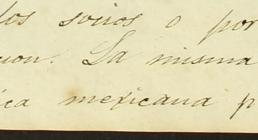 los socios o por
cion. La misma
ica mexicana p